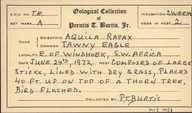 Oological Collection
of
Permin T. Burtis, Jr.
SET MARK A.
SCIENTIFIC AQUILA RAPAX
COMMON TAWNY EAGLE
LOCALITY E. OF WINDHOEK, S.W. AFRICA
DATE JUNE 29TH, 1972. NEST COMPOSED OF LARGE
STICKS, LINED WITH DRY GRASS, PLACED
40 FT. UP ON TOP OF A THORN TREE,
BIRD FLUSHED.
COLLECTED BY P.T. BURTIS